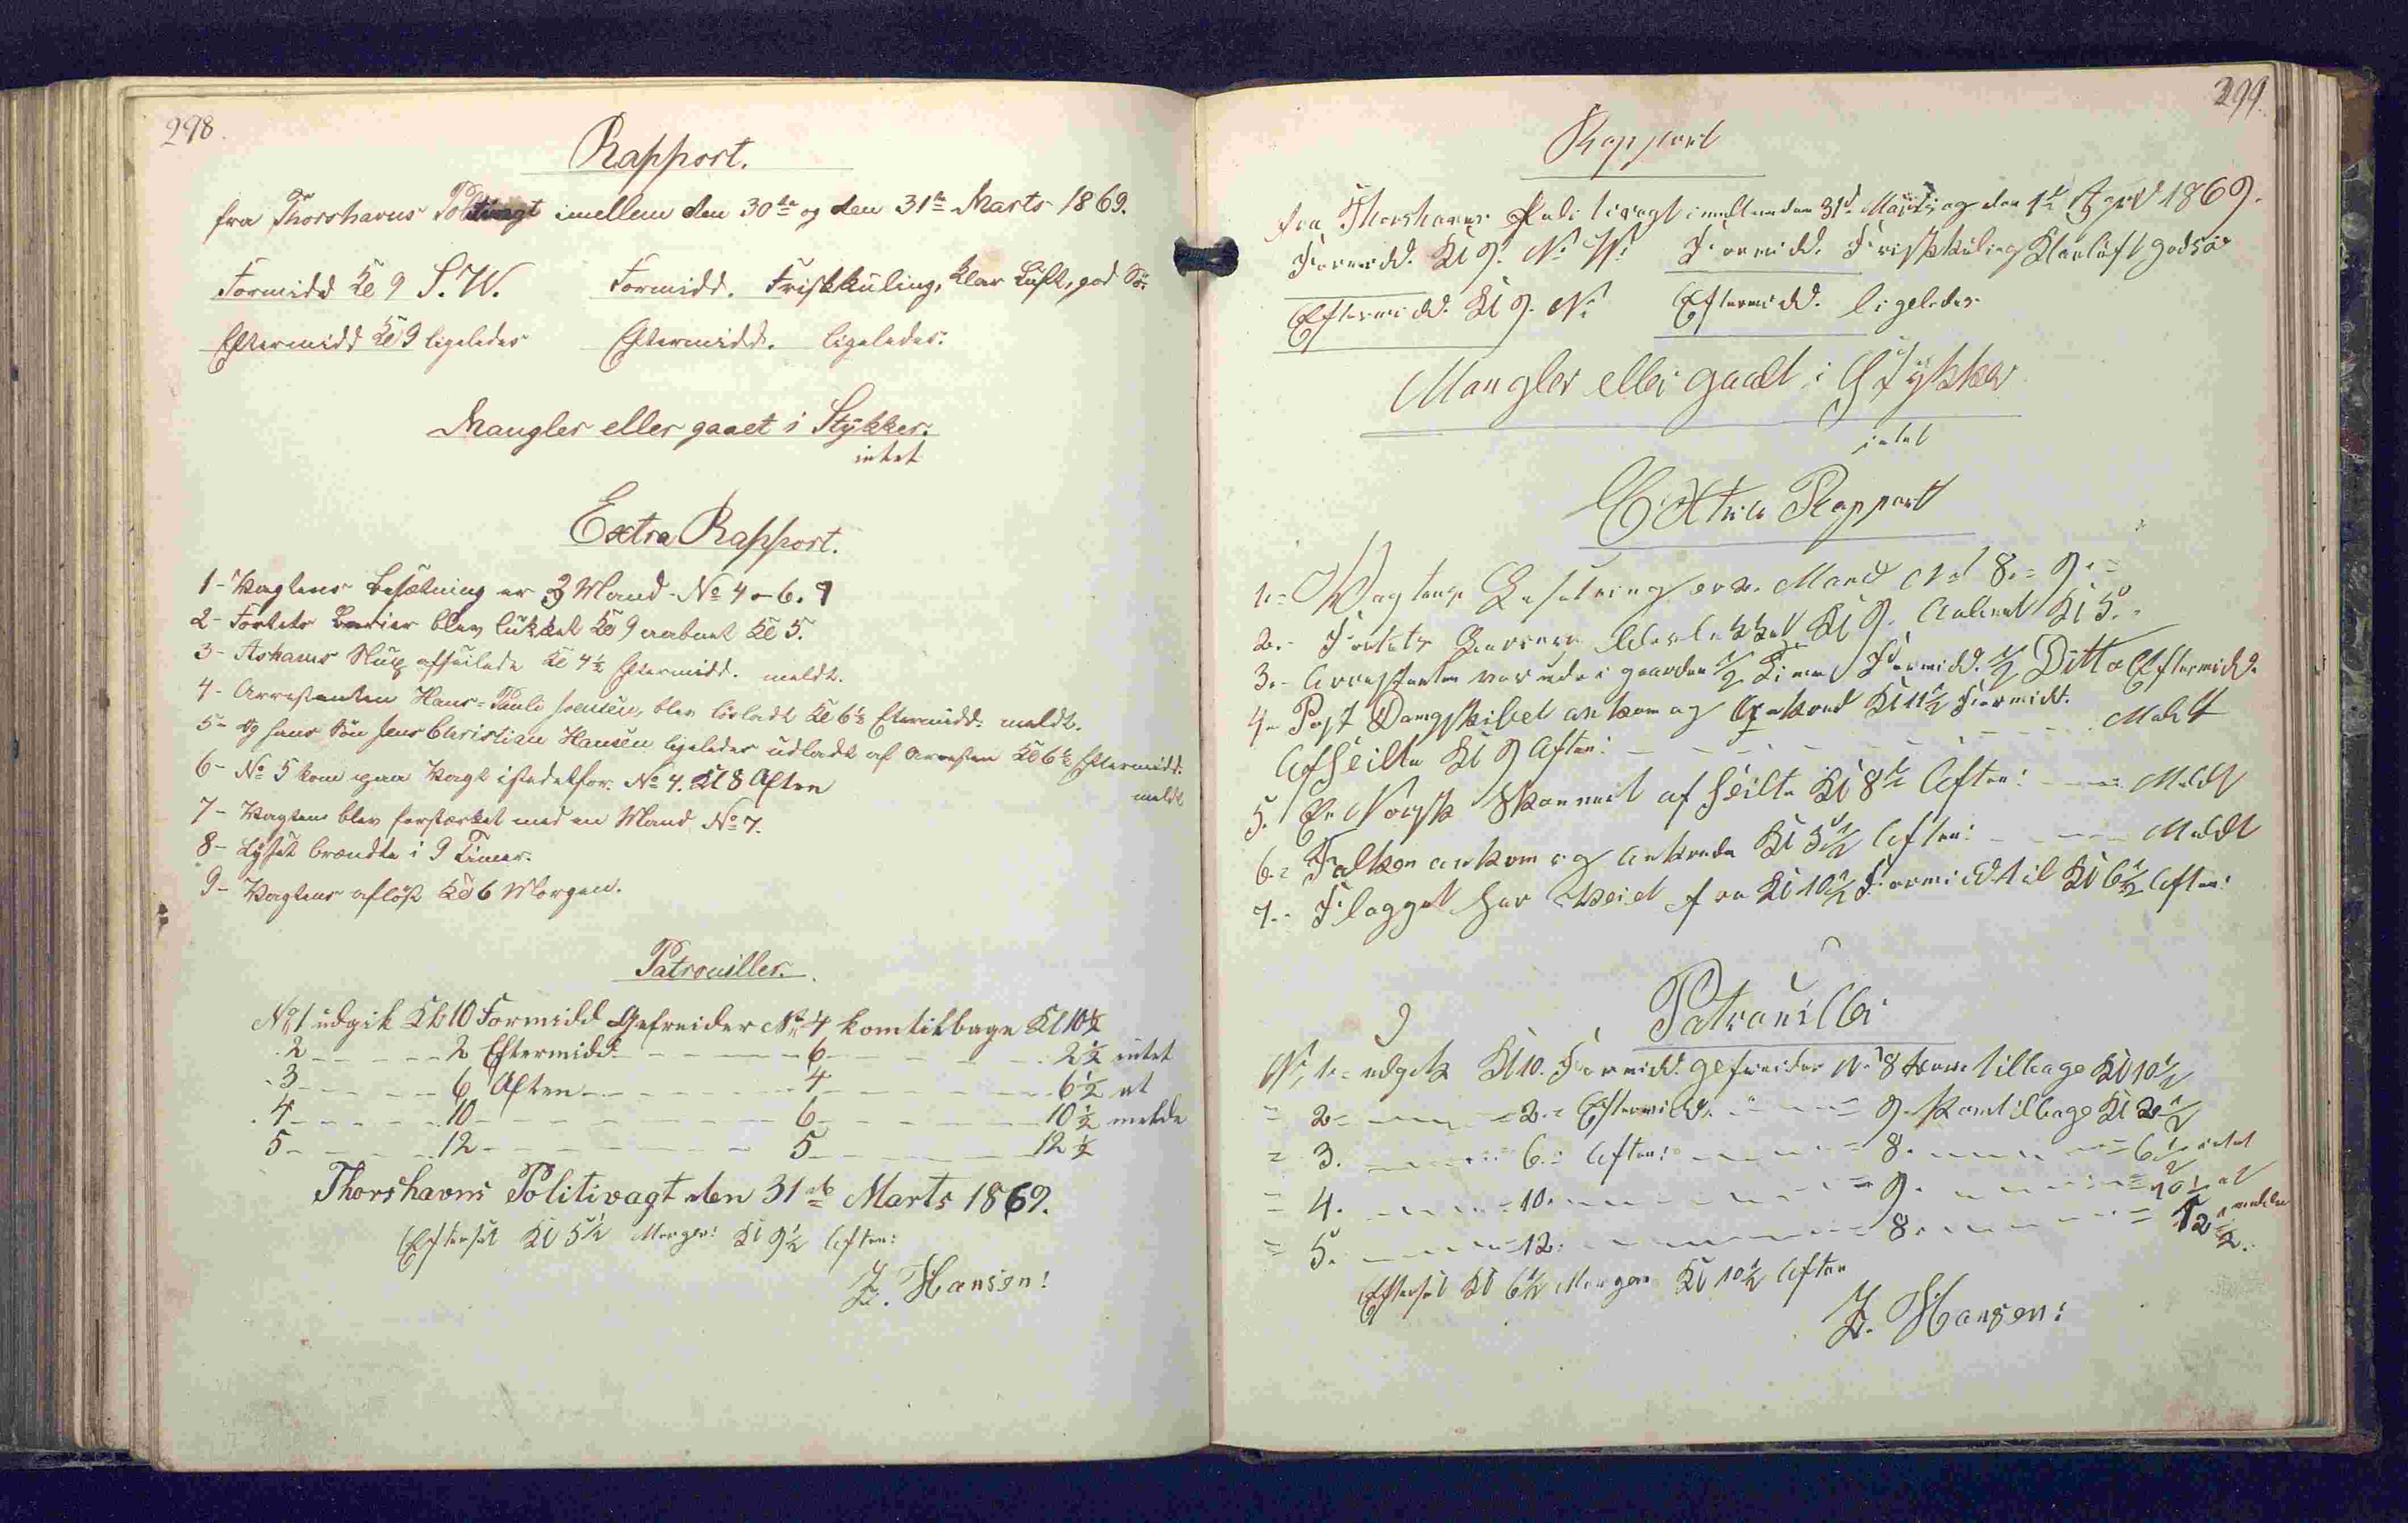 298.
Rapport.
fra Thorshavns Politivagt imellem den 30te og den 31te Marts 1869.
Formidd Kl 9 S.W. Formidd. Friskkuling, klar Luft, god Sö.
Eftermidd Kl 9 ligeledes Eftermidd. ligeledes.
Mangler eller gaaet i Stykker.
intet
Extra Rapport.
1- Vagtens besætning er 3 Mand No 4-6. 7
2- Fortets Barier blev lukket Kl 9 aabnet Kl 5.
3- Slup afseilede Kl 4½ Eftermidd. meldt.
4- Arrestanten Hans-Pauli Joensen, blev lösladt Kl 6½ Eftermidd: meldt.
5- og hans Sön Jens Christian Hansen ligeledes udladt af Arresten Kl 6½ Eftermidd.
meldt
6- No 5 kom paa Vagt istedetfor. No 4. Kl 8 Aften
7- Vagten blev forstærket med en Mand No 7.
8- Lyset brændte i 9 Timer.
9- Vagtens aflöst Kl 6 Morgen.
Patrouiller.
No 1 udgik Kl 10 Formidd Gefreider No 4 kom tilbage Kl 10½
2 - - - - 2 Eftermidd - - - - 6 - - - - 2½ intet
3 - - - - 6 Aften - - - - 4 - - - - 6½ at
4 - - - - 10 - - - - 6 - - - - 10½ melde
5 - - - - 12 - - - - 5 - - - - 12½
Thorshavns Politivagt den 31te Marts 1869.
Efterset Kl 5½ Morgen: Kl 9½ Aften:
Z. Hansen:
299.
Rapport
fra Thorshavns Politivagt imellem den 31d Marts og den 1te April 1869.
Formidd. Kl 9. N. W. Formidd. Friskkuling Klarluft god sö
Eftermidd. Kl 9. N. Eftermidd. ligeledes
Mangler eller gaaet i Stykker
intet
Extra Rapport
1.- Vagtens Besetning er 2. Mand No 8.- 9.-
2.- Fortets Barriere blev lukket Kl 9. Aabnet Kl 5.-
3.- Arrestanten var ude i gaarden ½ Time Formidd. ½ Ditto Eftermidd.
4- Post Dampskibet ankom og ankrede Kl 11½ Formidd.
Afseilte Kl 9 Aften: - - - - Meldt
5. En Norsk Skonnert afseilte Kl 8½ Aften: - - - Meldt
6.- Falken ankom og ankrede Kl 5½ Aften: - - - Meldt
7.- Flagget har Veiet fra Kl 10½ Formidd til Kl 6½ Aften:
Patrouiller
No 1.- udgik Kl 10. Formidd. gefreider No 8 kom tilbage Kl 10½
= 2 - - - 2.- Eftermidd. - - - 9. kom tilbage Kl 2½
= 3. - - - 6.- Aften: - - - 8. - - - 6½ intet
= 4. - - - 10. - - - 9. - - - 10½ at
= 5. - - - 12. - - - 8. - - - 12½. melde
Efterset Kl 6½ Morgen Kl 10½ Aften
Z. Hansen: